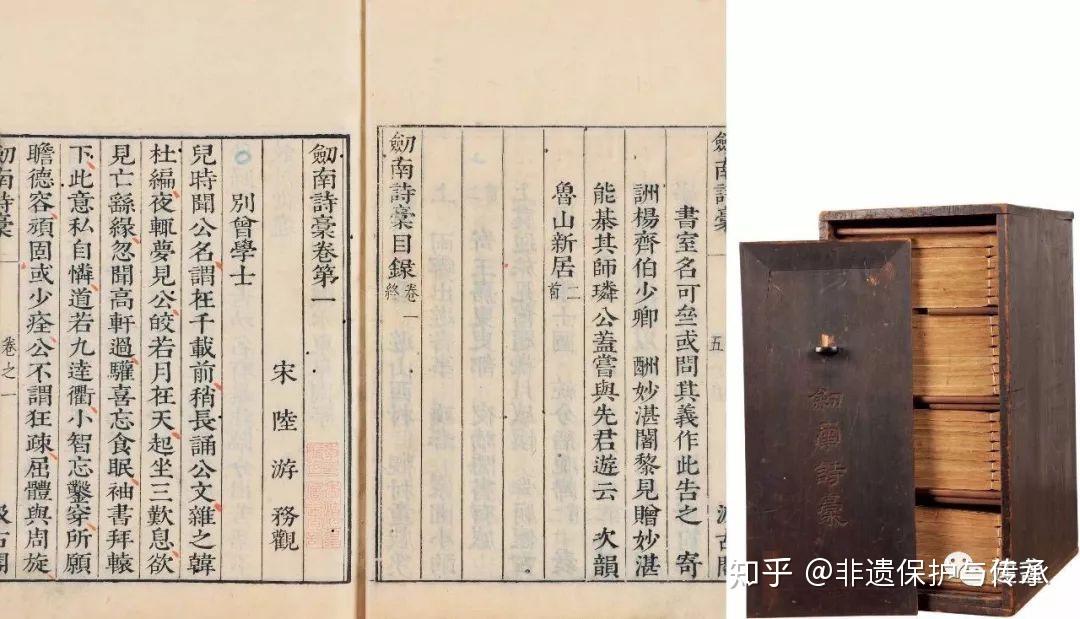 劒南詩槀 一 五 汲古閣
書室名可垒或問其義作此告之 寄
詶楊齊伯少卿 酬妙湛闍黎見贈妙湛
能棊其師璘公蓋嘗與先君遊云 次韻
魯山新居二首
劒南詩槀目録 卷一終
劒南詩槀卷第一
宋 陸游 務觀
別曾學士
兒時聞公名謂在千載前稍長誦公文雜之韓
杜編夜輒夢見公皎若月在天起坐三歎息欲
見亡繇緣忽聞高軒過驩喜忘食眠袖書拜轅
下此意私自憐道若九逵衢小智忘鑿穿所願
瞻德容頑固或少痊公不謂狂疎屈體與周旋
劒南詩槀 卷之一 汲古閣
劒南詩槀
知乎 @非遗保护与传承